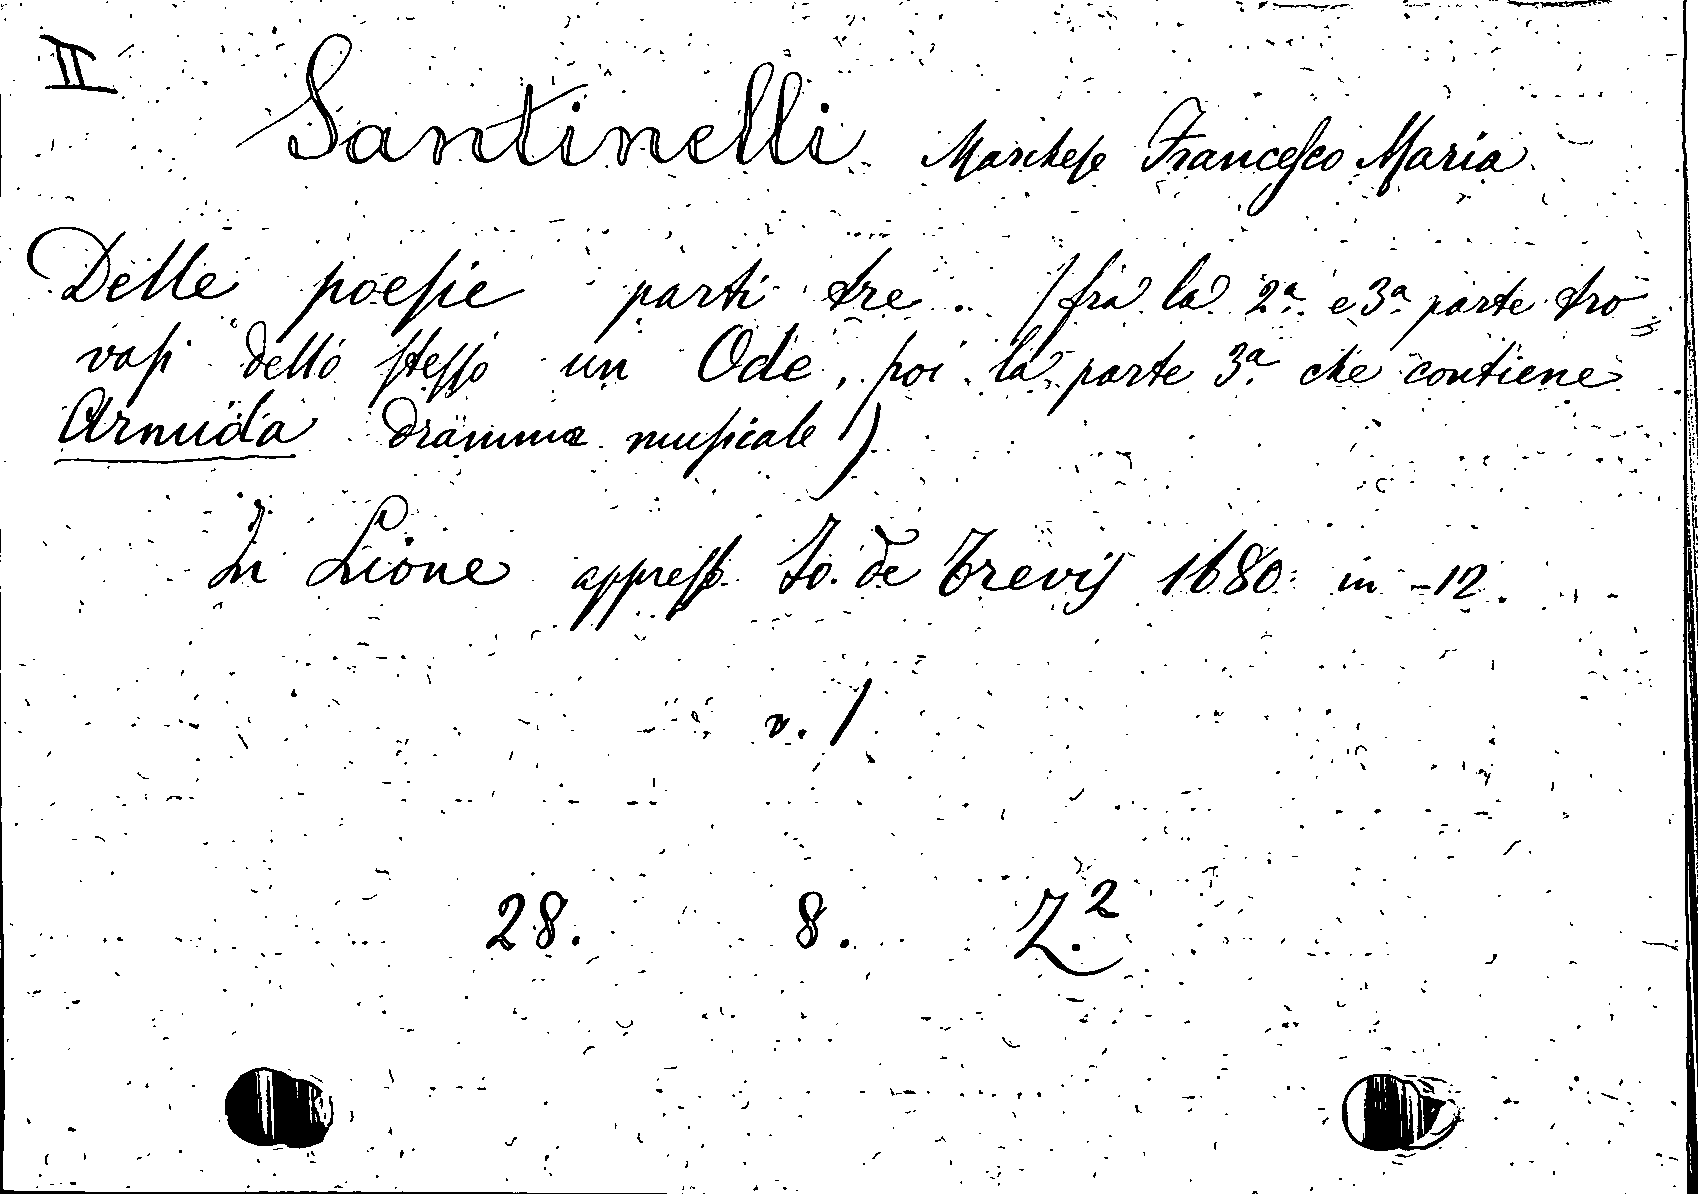 II
Santinelli Marchese Francesco Maria
Delle poesie parti tre. (fra la 2a. e 3a. parte tro=
vasi dello stesso un Ode, poi la parte 3a. che contiene
Armida dramma musicale)
In Lione appresso Jo. de Trevis 1680. in -12.
v. 1
28. 8. Z.2